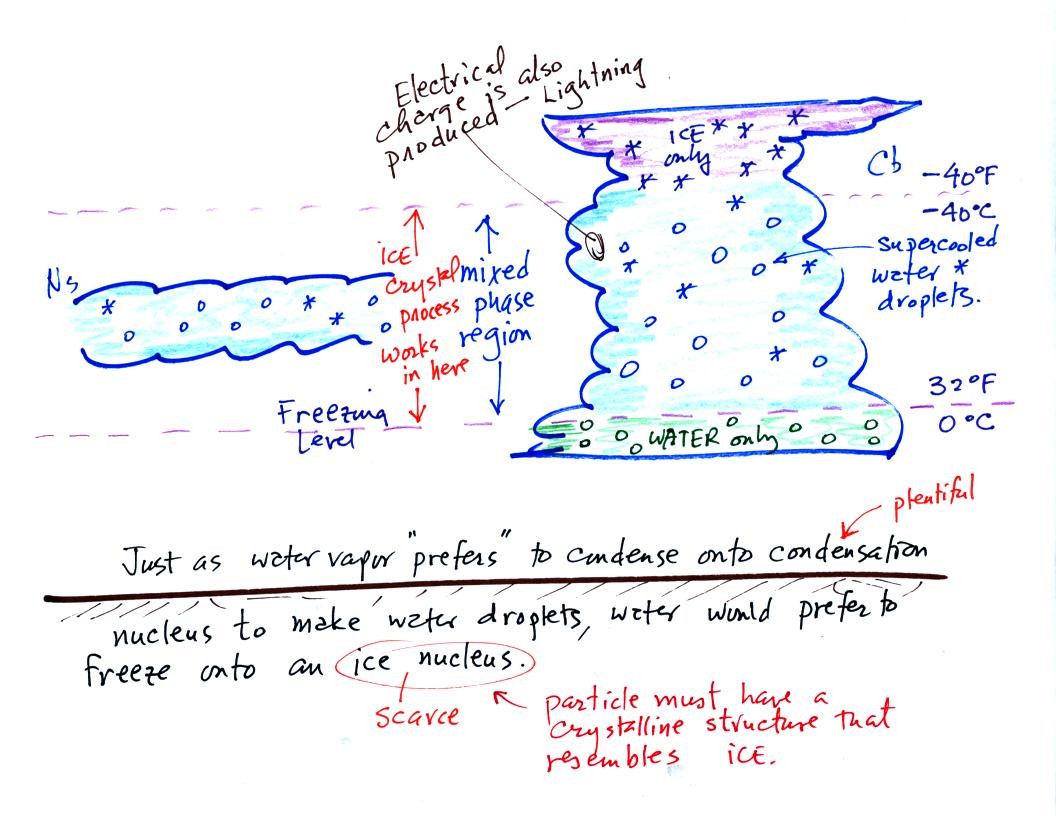 Electrical
charge is also
produced — Lightning
ICE
only
Cb
-40°F
-40°C
supercooled
water *
droplets.
Ns
ICE
crystal
process
works
in here
mixed
phase
region
Freezing
Level
32°F
0°C
WATER only
plentiful
Just as water vapor "prefers" to condense onto condensation
nucleus to make water droplets, water would prefer to
freeze onto an ice nucleus.
scarce
particle must have a
crystalline structure that
resembles ICE.